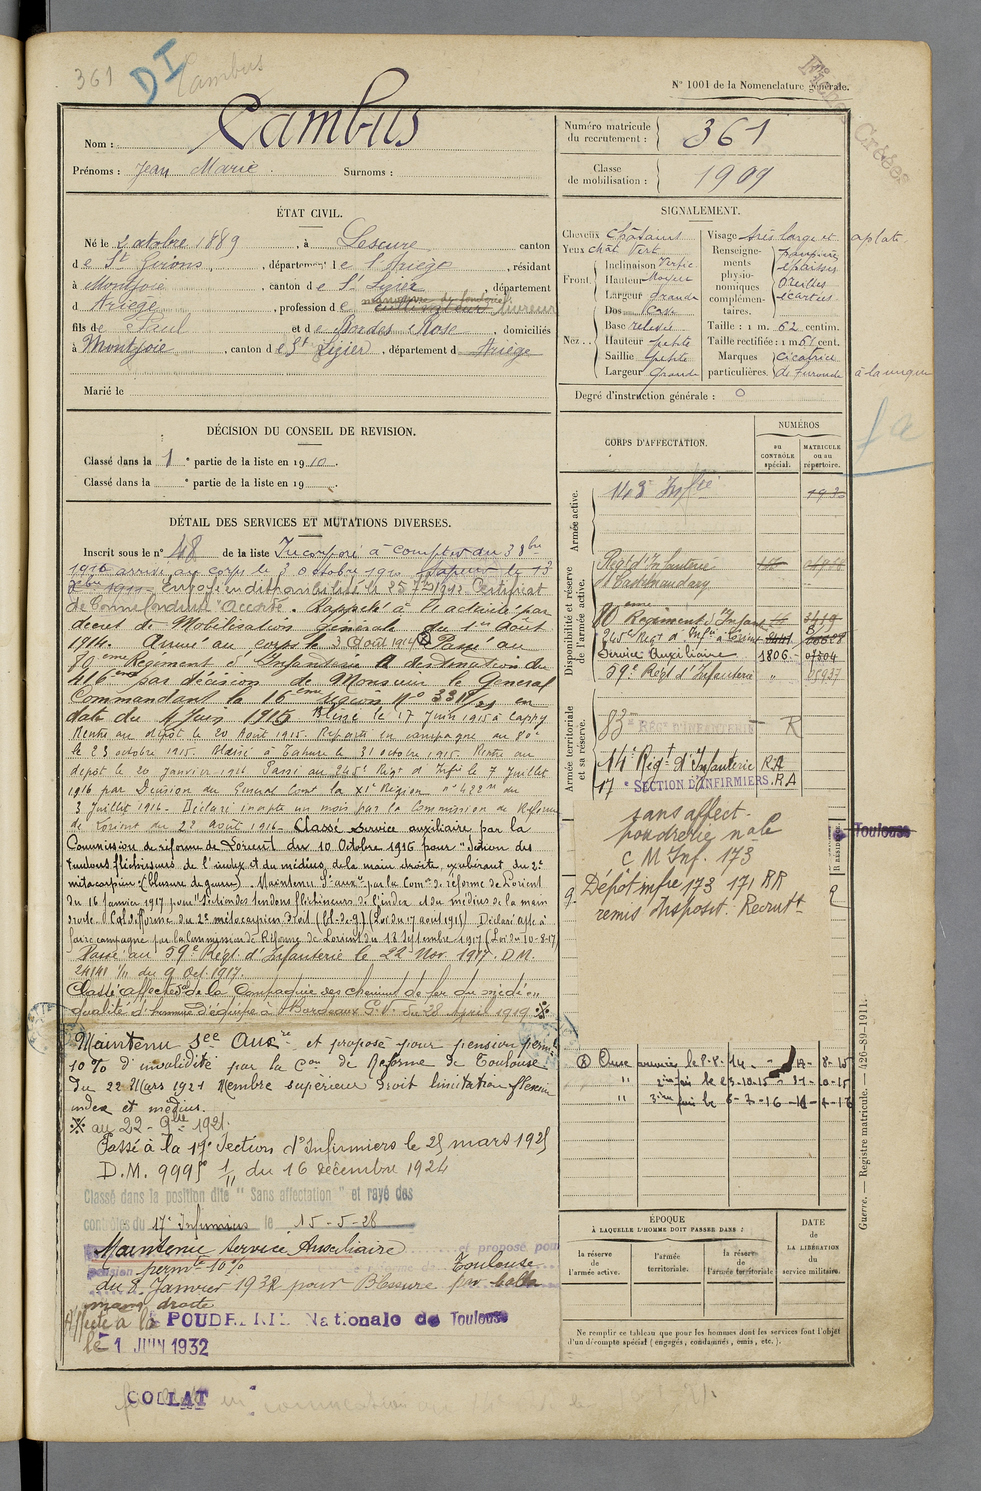 361
DI
Cambus
N° 1001 de la Nomenclature générale.
Nom : Cambus
Prénoms : Jean Marie. Surnoms :
Numéro matricule du recrutement : 361
Classe de mobilisation : 1909
ÉTAT CIVIL.
Né le 2 octobre 1889, à Lescure canton
de St Girons, département de l'Ariège, résidant
à Montjoie, canton de St Lizier, département
d Ariège, profession de cultivateur
fils de Paul et de Rose, domiciliés
à Montjoie, canton de St Lizier, département d Ariège
Marié le
SIGNALEMENT.
Cheveux châtains
Yeux chât vert
Front. Inclinaison Vertic
Hauteur Moyen
Largeur grande
Nez.. Dos cave
Base relevée
Hauteur petite
Saillie petite
Largeur Grande
Visage très large et aplati
Renseignements physionomiques complémentaires. paupières épaisses oreilles écartées
Taille : 1 m. 62 centim.
Taille rectifiée : 1 m. 61 cent.
Marques particulières. cicatrice de furoncle à la nuque
Degré d'instruction générale : 0
DÉCISION DU CONSEIL DE REVISION.
Classé dans la 1e partie de la liste en 1910.
Classé dans la e partie de la liste en 19
DÉTAIL DES SERVICES ET MUTATIONS DIVERSES.
Inscrit sous le n° 48 de la liste Incorporé à compter du 3 8bre
1910 arrivé au corps le 3 octobre 1910
1911 Envoyé en disponibilité le 25 7bre 1912 Certificat
de bonne conduite "Accordé". Rappelé à l'activité par
décret de Mobilisation Générale du 1er Août
1914. Arrivé au corps le 3 Août 1914 Passé au
80eme Régiment d'Infanterie à destination du
416eme par décision de Monsieur le Général
Commandant la 16eme région N° 331/21 en
date du 4 Juin 1915 Blessé le 17 Juin 1915 à Cappy
Rentré au dépôt le 20 Août 1915. Reparti en campagne au 80e
le 23 octobre 1915. Blessé à Tahure le 31 octobre 1915. Rentré au
dépôt le 20 janvier 1916 Passé au 245e Régt d'Infie le 7 Juillet
1916 par Décision du Général Comt la XIe Région n° 422 du
3 Juillet 1916. Déclaré inapte un mois par la Commission de Réforme
de Lorient du 22 Août 1916. Classé service auxiliaire par la
Commission de réforme de Lorient du 10 Octobre 1916 pour "Section des
tendons fléchisseurs de l'index et du médius, de la main droite, exubérant du 2e
métacarpien (blessure de guerre). Maintenu Sce auxre par la Comon de réforme de Lorient
du 16 janvier 1917 pour "section des tendons fléchisseurs de l'index et du médius de la main
droite. Cal difforme du 2e métacarpien droit (bl. de g.) (Loi du 17 août 1915) Déclaré apte à
faire campagne par la Commission de Réforme de Lorient du 18 septembre 1917 (Loi du 10-8-17)
Passé au 59e Régt d'Infanterie le 22 Nov. 1917. D.M.
24141 1/11 du 9 Oct. 1917.
Classé affecté de la Compagnie des chemins de fer du Midi en
qualité d'homme d'équipe à Bordeaux du 28 April 1919
Maintenu Sce Auxre et proposé pour pension perm.
10% d'invalidité par la Con de Réforme de Toulouse
du 22 Mars 1921 Membre supérieur droit limitation flexion
index et médius.
au 22-9bre 1921.
Passé à la 17e Section d'Infirmiers le 25 mars 1925
D.M. 9995 1/11 du 16 décembre 1924
Classé dans la position dite "Sans affectation" et rayé des
contrôles du 17e Infirmiers le 15-5-28
Maintenu service Auxiliaire et proposé pour
pension permte 10% Toulouse
du 8 Janvier 1932 pour Blessure par balle
main droite
Affecté à la POUDRERIE Nationale de Toulouse
le 1 JUIN 1932
COLLAT
CORPS D'AFFECTATION.
NUMÉROS
au CONTRÔLE spécial.
MATRICULE ou au répertoire.
Armée active.
143e Infie 1930
Disponibilité et réserve de l'armée active.
Régt d'Infanterie
Castelnaudary
80eme Régiment d'Infanterie
245e Regt d'Infie
Service Auxiliaire 1806 07504
59e Régt d'Infanterie
Armée territoriale et sa réserve.
83e RÉGT D'INFANTERIE R
14e Régt d'Infanterie R.A
17e SECTION D'INFIRMIERS. R.A
sans affect.
poudrerie nale
C M Inf. 173
Toulouse
Dépôt infie 173 171 RR
remis disposit. Recrutt
Aux armées le 8-8-15
2ème fois le 23-10-15
3ème fois le 6-7-16
ÉPOQUE
À LAQUELLE L'HOMME DOIT PASSER DANS :
la réserve de l'armée active.
l'armée territoriale.
la réserve de l'armée territoriale
DATE DE LA LIBÉRATION du service militaire.
Ne remplir ce tableau que pour les hommes dont les services font l'objet
d'un décompte spécial (engagés, condamnés, omis, etc.).
Guerre. — Registre matricule. — 426-89-1911.